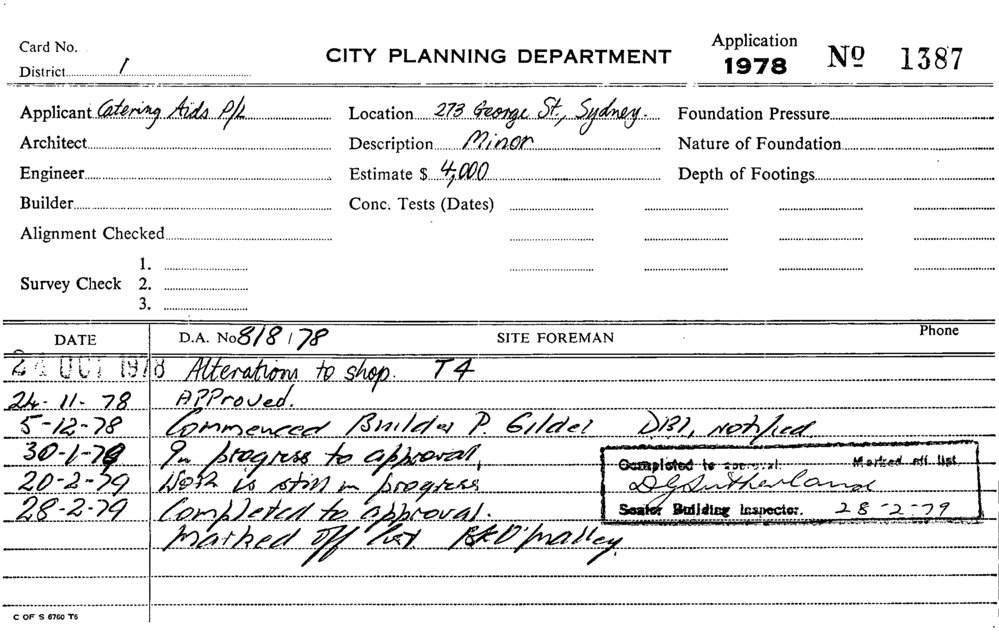 Card No.
District 1
CITY PLANNING DEPARTMENT
Application
1978
Nº 1387
Applicant Catering Aids P/L
Location 273 George St., Sydney.
Foundation Pressure
Architect
Description Minor
Nature of Foundation
Engineer
Estimate $ 4,000
Depth of Footings
Builder
Conc. Tests (Dates)
Alignment Checked
Survey Check
1.
2.
3.
DATE
D.A. No 818/78
SITE FOREMAN
Phone
24 OCT 1978 Alterations to shop. T4
24-11-78 Approved.
5-12-78 Commenced Builder P. Gilder notified
30-1-79 In progress to approval,
20-2-79 Work is still in progress
28-2-79 Completed to approval.
Marked off list.
Completed to approval. Marked off list
DGSutherland
Senior Building Inspector. 28-2-79
C OF S 6760 T5